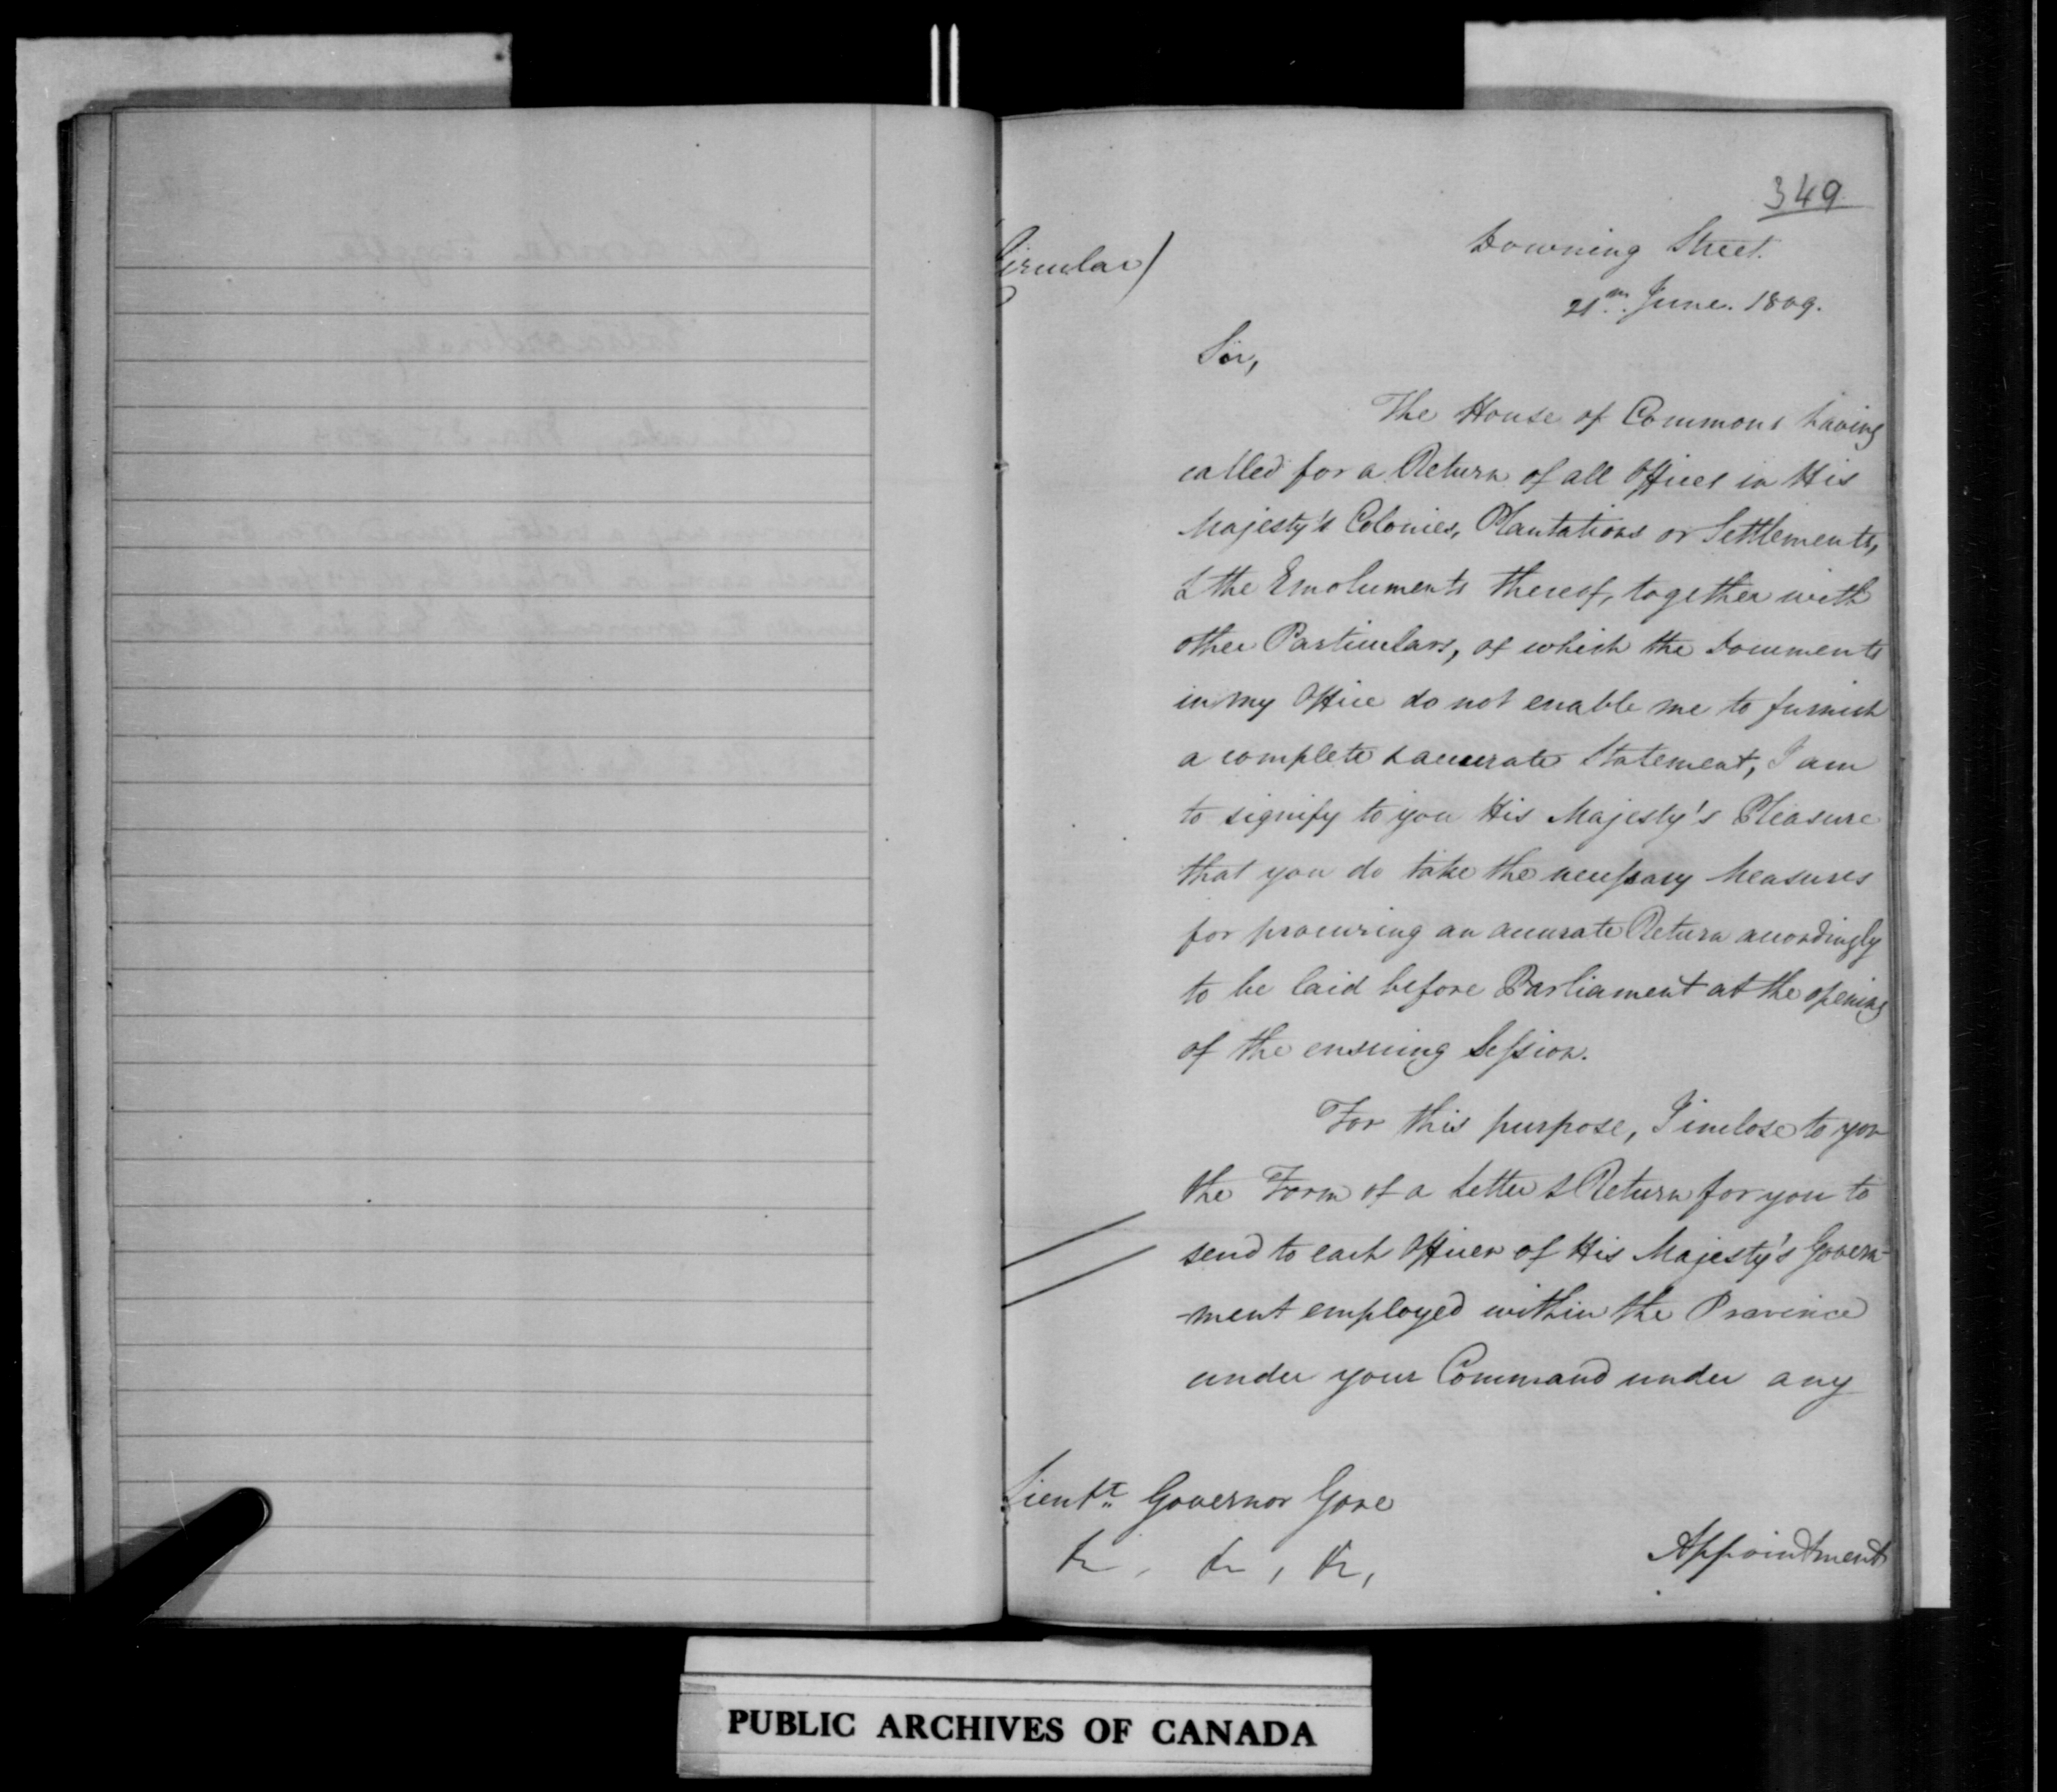 349
Circular)
Downing Street.
21st June. 1809.
Sir,
The House of Commons having
called for a Return of all Offices in His
Majesty's Colonies, Plantations or Settlements,
& the Emoluments thereof, together with
other Particulars, of which the Documents
in my Office do not enable me to furnish
a complete & accurate Statement, I am
to signify to you His Majesty's Pleasure
that you do take the necessary Measures
for procuring an accurate Return accordingly
to be laid before Parliament at the opening
of the ensuing Session.
For this purpose, I inclose to you
the Form of a Letter & Return for you to
send to each Officer of His Majesty's Govern-
-ment employed within the Province
under your Command under any
Lieutt. Governor Gore
&c, &c, &c,
Appointment
PUBLIC ARCHIVES OF CANADA